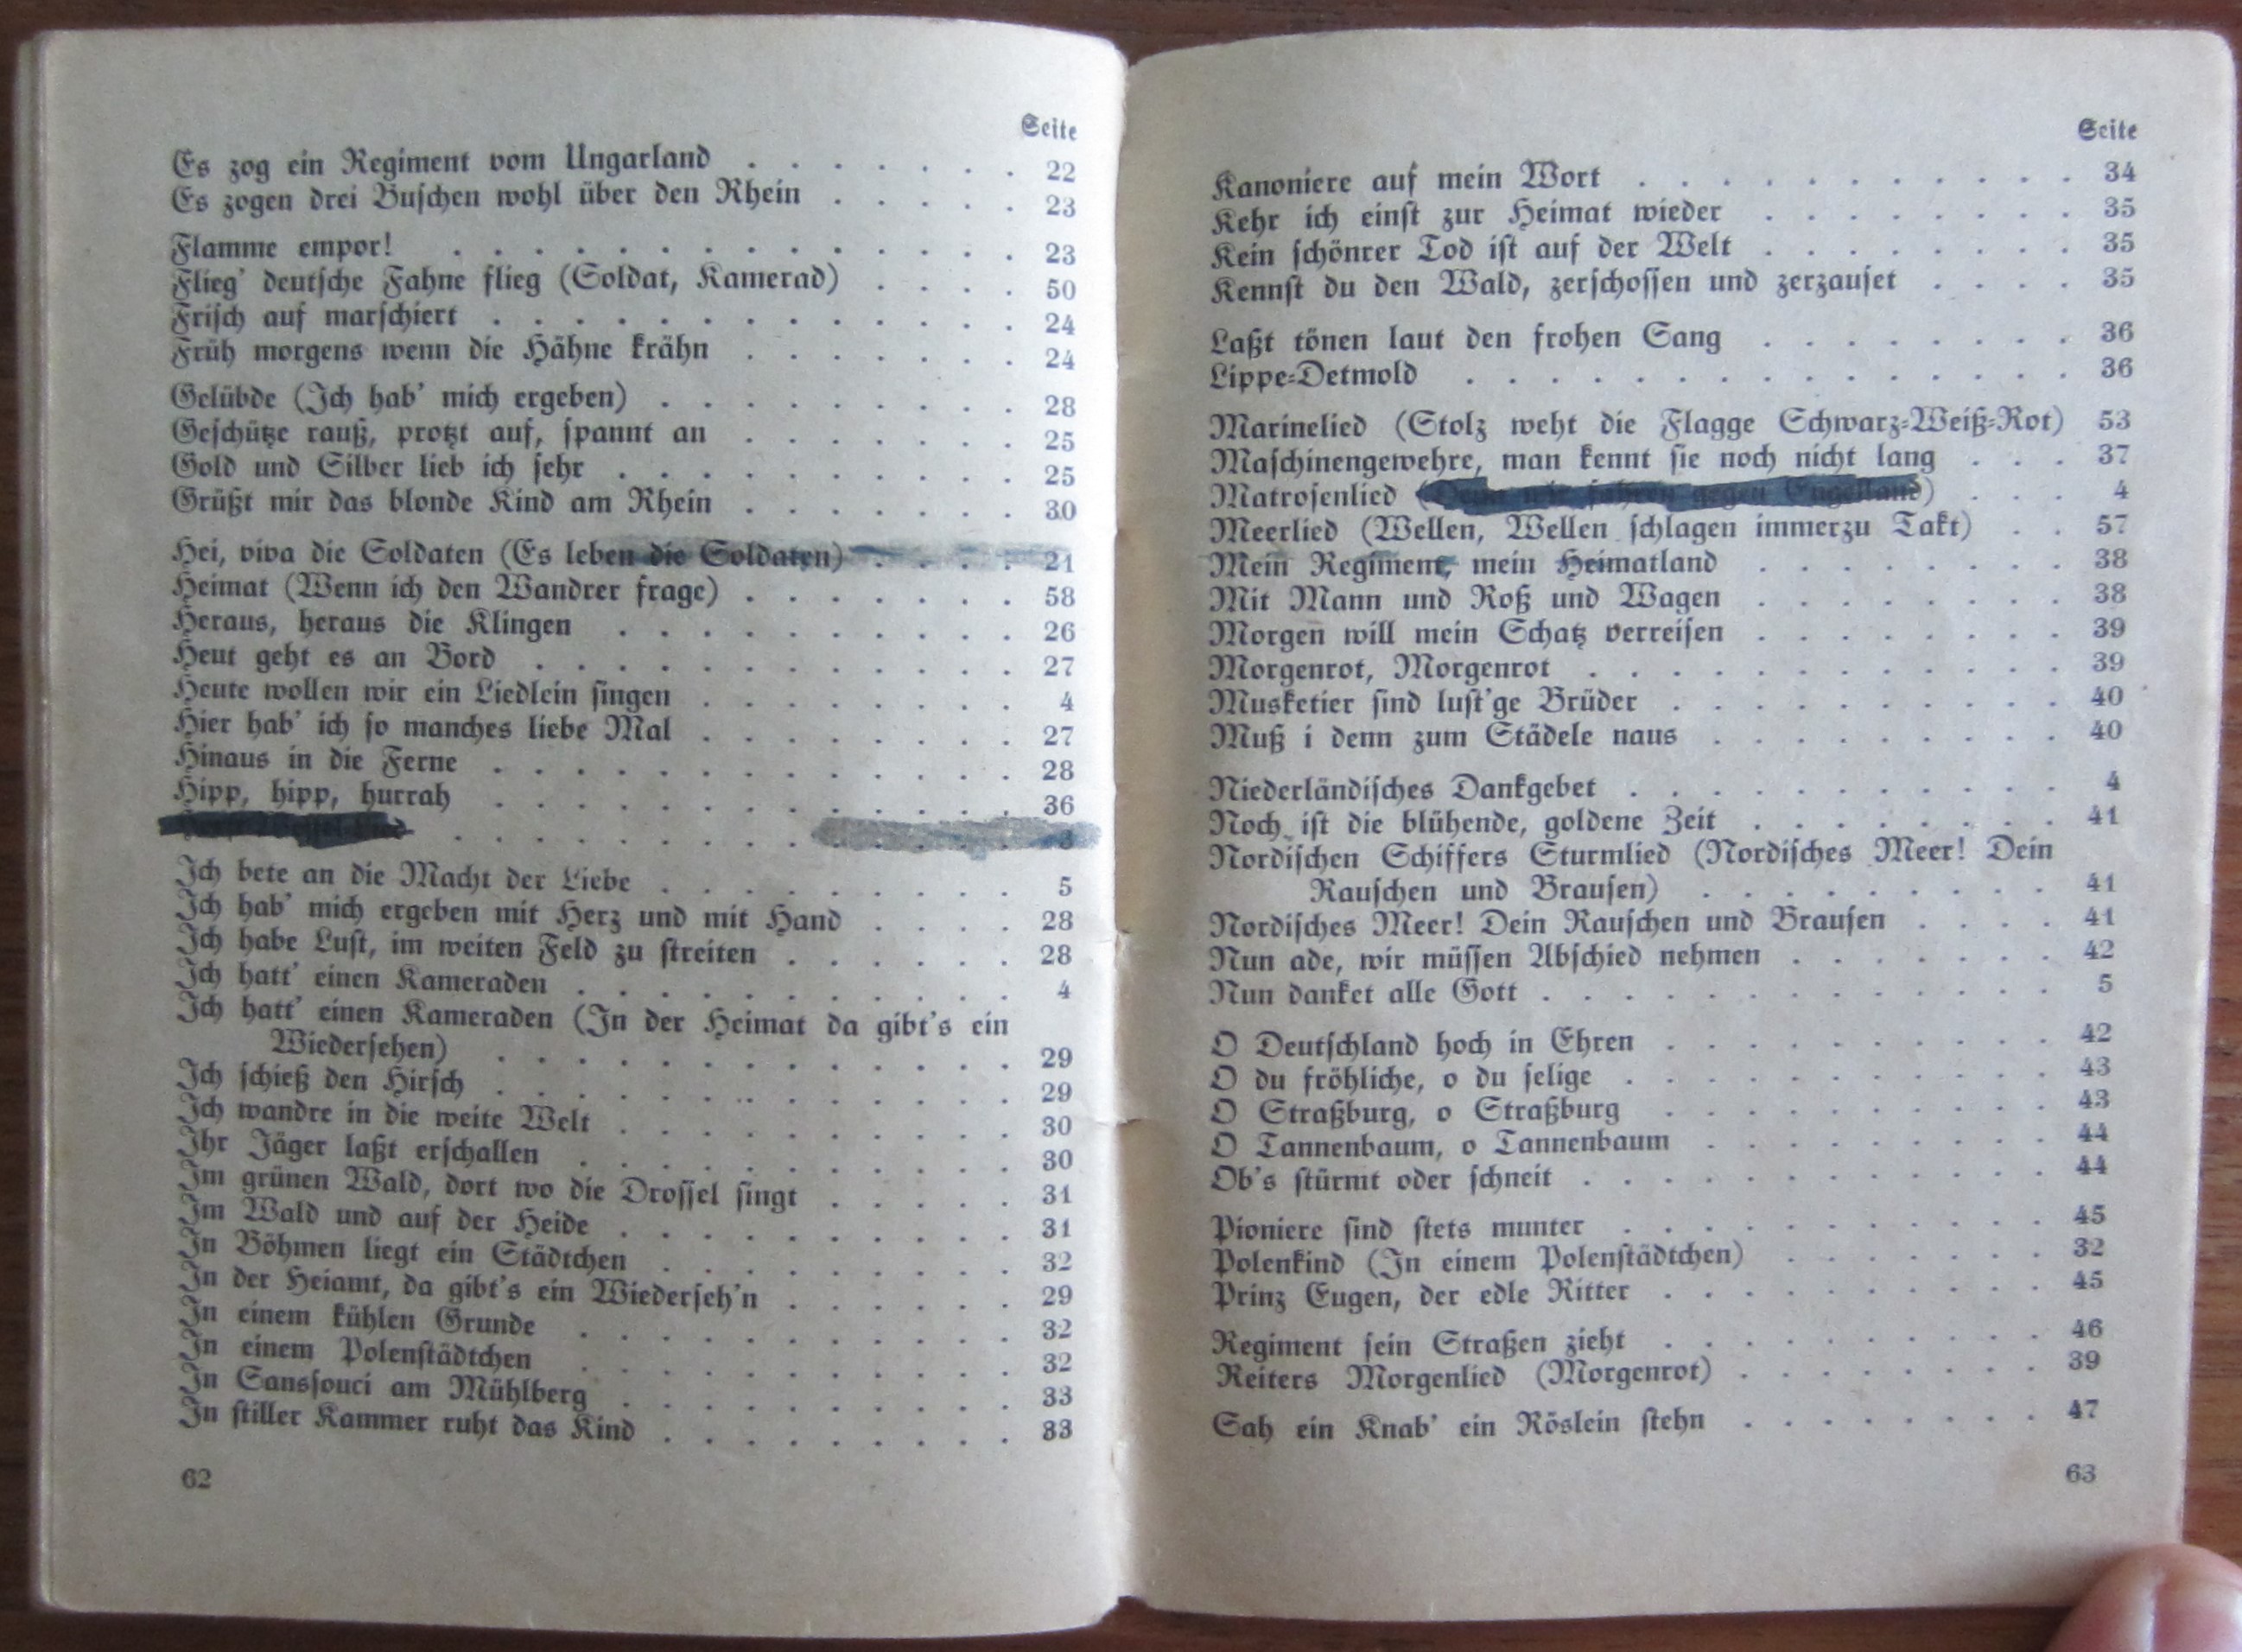 Seite
Es zog ein Regiment vom Ungarland . . . . . . . 22
Es zogen drei Buschen wohl über den Rhein . . . . . 23
Flamme empor! . . . . . . . . . . . . . 23
Flieg' deutsche Fahne flieg (Soldat, Kamerad) . . . . 50
Frisch auf marschiert . . . . . . . . . . . . . 24
Früh morgens wenn die Hähne krähn . . . . . . . 24
Gelübde (Ich hab' mich ergeben) . . . . . . . . . 28
Geschütze rauß, protzt auf, spannt an . . . . . . . 25
Gold und Silber lieb ich sehr . . . . . . . . . . 25
Grüßt mir das blonde Kind am Rhein . . . . . . . 30
Hei, viva die Soldaten (Es leben die Soldaten) . . . . 21
Heimat (Wenn ich den Wandrer frage) . . . . . . . 58
Heraus, heraus die Klingen . . . . . . . . . . 26
Heut geht es an Bord . . . . . . . . . . . . 27
Heute wollen wir ein Liedlein singen . . . . . . . . 4
Hier hab' ich so manches liebe Mal . . . . . . . . 27
Hinaus in die Ferne . . . . . . . . . . . . . 28
Hipp, hipp, hurrah . . . . . . . . . . . . . 36
Ich bete an die Macht der Liebe . . . . . . . . . 5
Ich hab' mich ergeben mit Herz und mit Hand . . . . 28
Ich habe Lust, im weiten Feld zu streiten . . . . . . 28
Ich hatt' einen Kameraden . . . . . . . . . . . 4
Ich hatt' einen Kameraden (In der Heimat da gibt's ein
Wiedersehen) . . . . . . . . . . . . . 29
Ich schieß den Hirsch . . . . . . . . . . . . . 29
Ich wandre in die weite Welt . . . . . . . . . . 30
Ihr Jäger laßt erschallen . . . . . . . . . . . 30
Im grünen Wald, dort wo die Drossel singt . . . . . 31
Im Wald und auf der Heide . . . . . . . . . . 31
In Böhmen liegt ein Städtchen . . . . . . . . . 32
In der Heiamt, da gibt's ein Wiederseh'n . . . . . . 29
In einem kühlen Grunde . . . . . . . . . . . 32
In einem Polenstädtchen . . . . . . . . . . . 32
In Sanssouci am Mühlberg . . . . . . . . . . 33
In stiller Kammer ruht das Kind . . . . . . . . . 33
62
Seite
Kanoniere auf mein Wort . . . . . . . . . . . 34
Kehr ich einst zur Heimat wieder . . . . . . . . 35
Kein schönrer Tod ist auf der Welt . . . . . . . . 35
Kennst du den Wald, zerschossen und zerzauset . . . . 35
Laßt tönen laut den frohen Sang . . . . . . . . 36
Lippe-Detmold . . . . . . . . . . . . . . 36
Marinelied (Stolz weht die Flagge Schwarz-Weiß-Rot) 53
Maschinengewehre, man kennt sie noch nicht lang . . . 37
Matrosenlied (Denn wir fahren gegen Engelland) . . . 4
Meerlied (Wellen, Wellen schlagen immerzu Takt) . . 57
Mein Regiment, mein Heimatland . . . . . . . . 38
Mit Mann und Roß und Wagen . . . . . . . . 38
Morgen will mein Schatz verreisen . . . . . . . . 39
Morgenrot, Morgenrot . . . . . . . . . . . . 39
Musketier sind lust'ge Brüder . . . . . . . . . . 40
Muß i denn zum Städele naus . . . . . . . . . 40
Niederländisches Dankgebet . . . . . . . . . . . 4
Noch ist die blühende, goldene Zeit . . . . . . . . 41
Nordischen Schiffers Sturmlied (Nordisches Meer! Dein
Rauschen und Brausen) . . . . . . . . . 41
Nordisches Meer! Dein Rauschen und Brausen . . . . 41
Nun ade, wir müssen Abschied nehmen . . . . . . . 42
Nun danket alle Gott . . . . . . . . . . . . . 5
O Deutschland hoch in Ehren . . . . . . . . . . 42
O du fröhliche, o du selige . . . . . . . . . . . 43
O Straßburg, o Straßburg . . . . . . . . . . 43
O Tannenbaum, o Tannenbaum . . . . . . . . . 44
Ob's stürmt oder schneit . . . . . . . . . . . . 44
Pioniere sind stets munter . . . . . . . . . . . 45
Polenkind (In einem Polenstädtchen) . . . . . . . 32
Prinz Eugen, der edle Ritter . . . . . . . . . . 45
Regiment sein Straßen zieht . . . . . . . . . . 46
Reiters Morgenlied (Morgenrot) . . . . . . . . . 39
Sah ein Knab' ein Röslein stehn . . . . . . . . 47
63